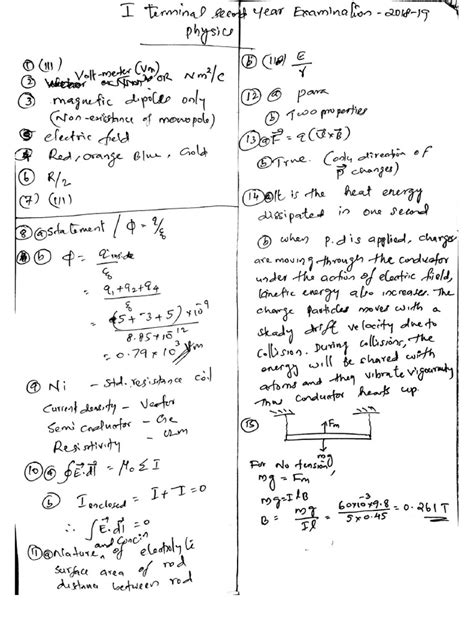 I terminal second year Examination - 2018-19
physics
① (iii)
② Volt-meter (Vm) OR Nm²/C
③ magnetic dipoles only
(Non-existance of monopole)
⑤ electric field
④ Red, orange Blue, Gold
⑥ R/2
(7) (iii)
⑧ ⓐ Statement / ϕ = q/ε
ⓑ ϕ = q inside / ε
= q₁+q₂+q₄ / ε
= (5+-3+5) × 10⁻⁹ / 8.85×10⁻¹²
= 0.79 × 10³ Vm
⑨ Ni - Std. resistance coil
Current density - Vector
Semi conductor - Ge
Resistivity - Ωm
⑩ ⓐ ∮B.dl = μ₀ Σ I
ⓑ I enclosed = I + -I = 0
∴ ∫B.dl = 0
⑪ ⓐ Nature, and Concn of electrolyte
surface area of rod
distance between rod
ⓑ (iii) E/r
⑫ ⓐ para
ⓑ Two properties
⑬ ⓐ F = q(V×B)
ⓑ True. (only direction of
P changes)
⑭ ⓐ It is the heat energy
dissipated in one second
ⓑ when p.d is applied, charges
are moving through the conductor
under the action of electric field,
kinetic energy also increases. The
charge particles moves with a
steady drift velocity due to
collision. During collisions, the
energy will be shared with
atoms and they vibrate vigourously
Thus conductor heats up.
⑮
Fm
mg
For No tension,
mg = Fm
mg = IlB
B = mg / Il = 60×10⁻³×9.8 / 5×0.45 = 0.261 T